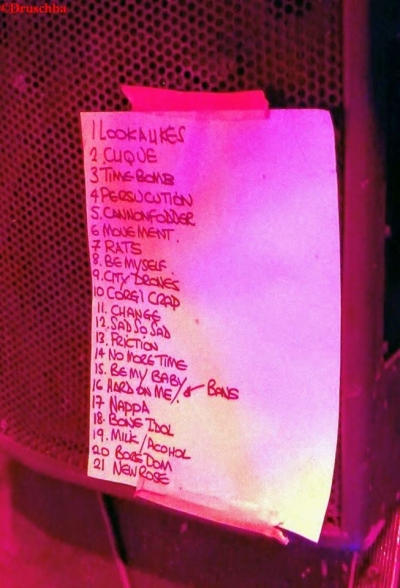 ©Druschba
1 LOOKALIKES
2 CLIQUE
3 TIMEBOMB
4 PERSUCUTION
5. CANNONFODDER
6 MOVEMENT.
7 RATS
8. BE MYSELF.
9. CITY DRONES
10 CORGI CRAP
11. CHANGE
12. SAD SO SAD
13. FRICTION
14 NO MORE TIME
15. BE MY BABY
16 HARD ON ME/. & BANG
17 NAPPA
18. BONE IDOL
19. MILK/ACOHOL
20 BORE DOM
21 NEW ROSE